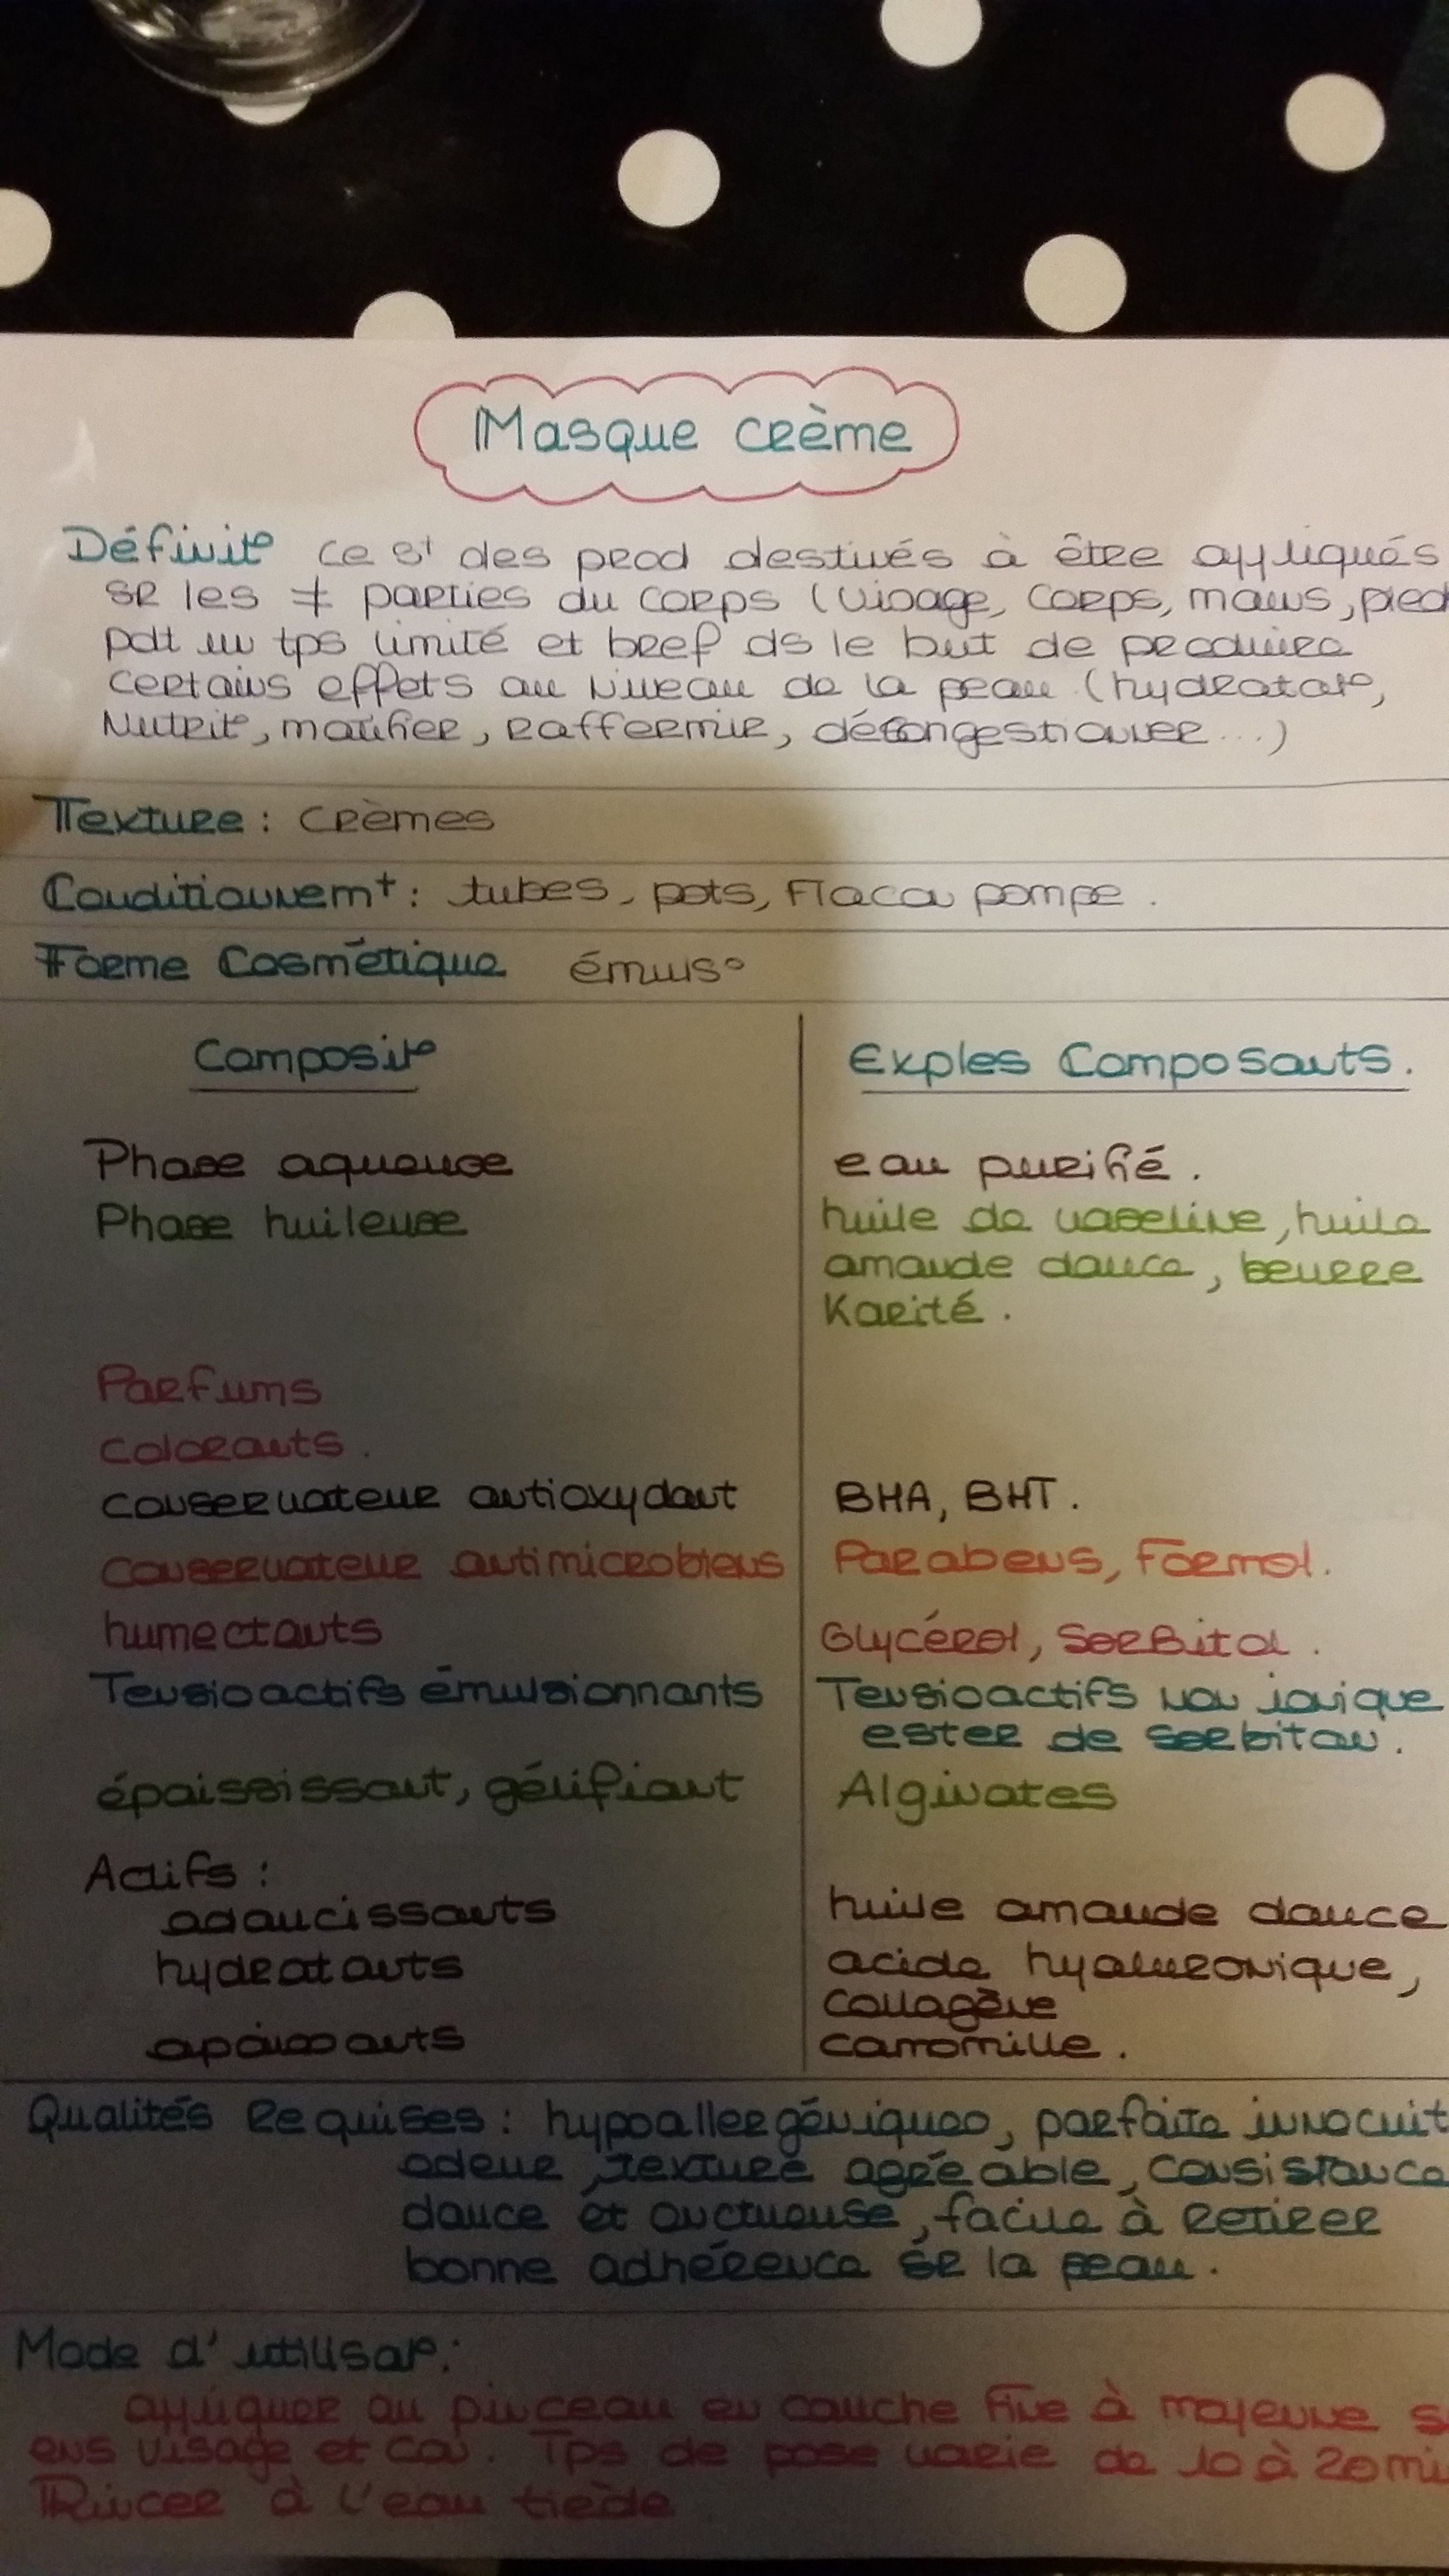 Masque crème
Définit° ce st des prod destinés à être appliqués
sr les ≠ parties du corps (visage, corps, mains, pied
pdt un tps limité et bref ds le but de produire
certains effets au niveau de la peau (hydratat°,
Nutrit°, matifier, raffermir, décongestionner...)
Texture : crèmes
Conditionnemt : tubes, pots, Flacon pompe.
Forme Cosmétique émuls°
Composit° Exples Composants.
Phase aqueuse eau purifié.
Phase huileuse huile de vaseline, huile
amande douce, beurre
Karité.
Parfums
colorants.
conservateur antioxydant BHA, BHT.
conservateur antimicrobiens Parabens, Formol.
humectants Glycérol, SorBitol.
Tensioactifs émulsionnants Tensioactifs non ionique
ester de sorbitan.
épaississant, gélifiant Alginates
Actifs :
adoucissants huile amande douce
hydratants acide hyaluronique,
collagène
apaisants camomille.
Qualités Requises : hypoallergéniques, parfaite innocuit
odeur, texture agréable, consistance
douce et onctueuse, facile à retirer
bonne adhérence sr la peau.
Mode d'utilisat° :
appliquer au pinceau en couche fine à moyenne s
ens visage et cou. Tps de pose varie de 10 à 20mi
Rincer à l'eau tiède